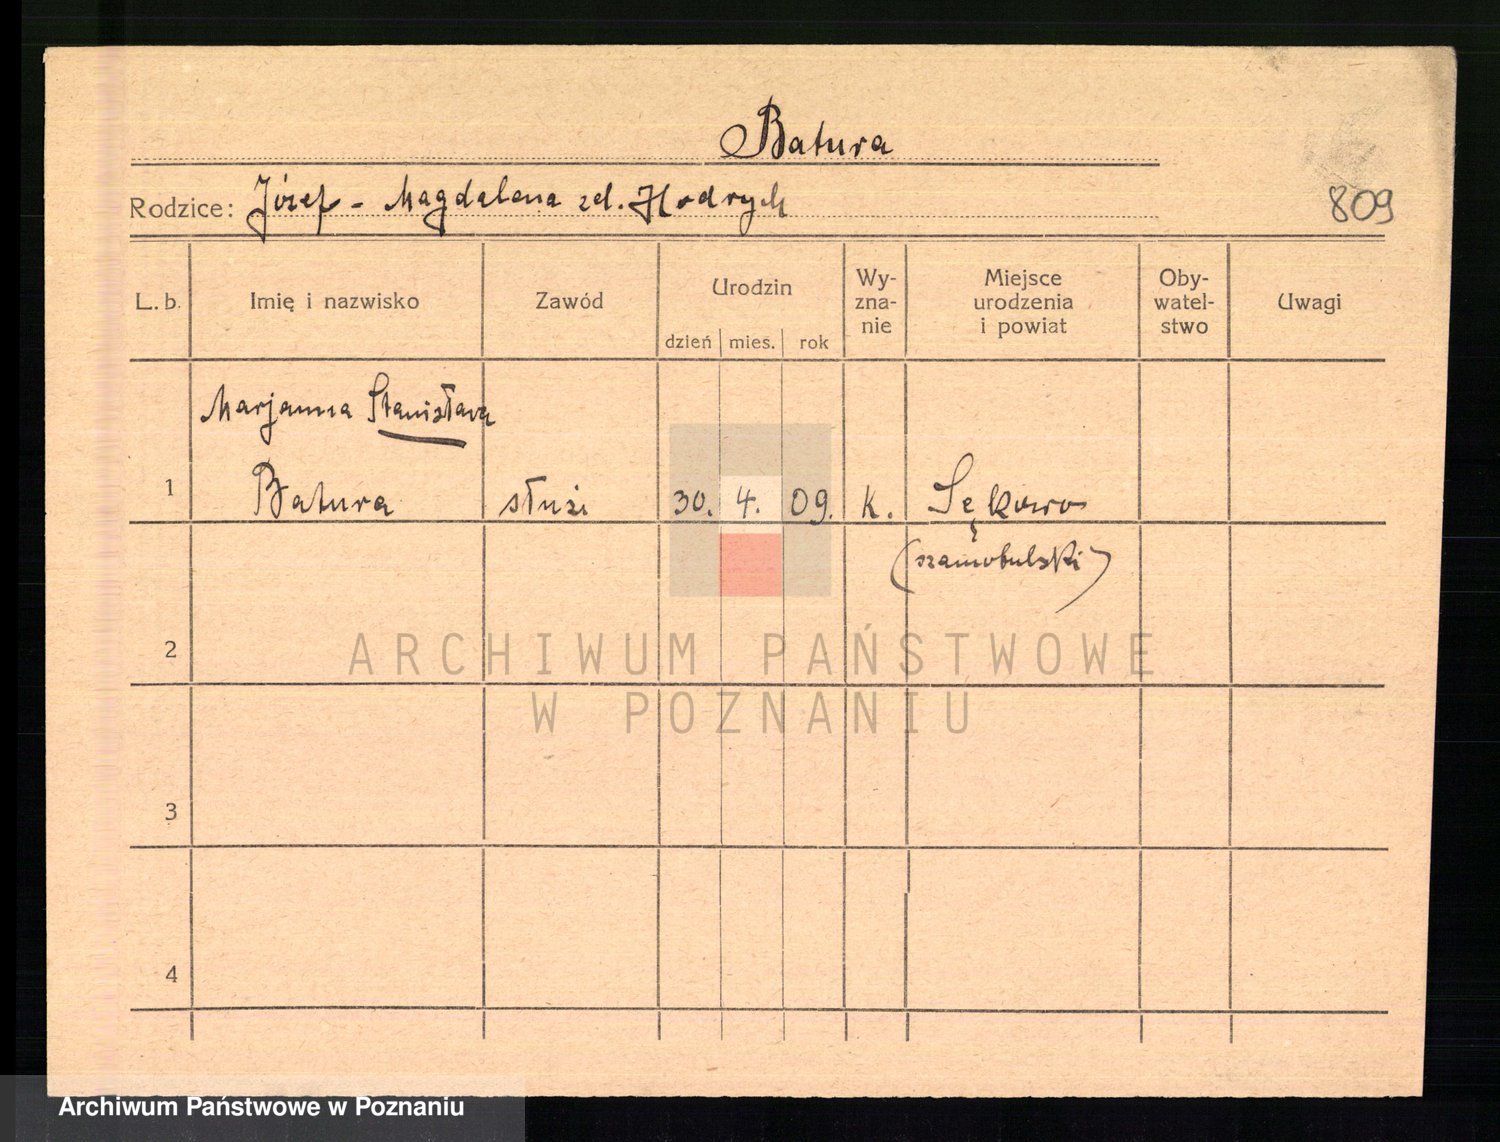 Batura
Rodzice: Józef - Magdalena zd. Hodrych
809
L. b. Imię i nazwisko Zawód Urodzin dzień mies. rok Wy-zna-nie Miejsce urodzenia i powiat Oby-watel-stwo Uwagi
Marjanna Stanisława
1 Batura służ 30. 4. 09. k. Sękowo
(szamotulski)
2
ARCHIWUM PAŃSTWOWE
W POZNANIU
3
4
Archiwum Państwowe w Poznaniu